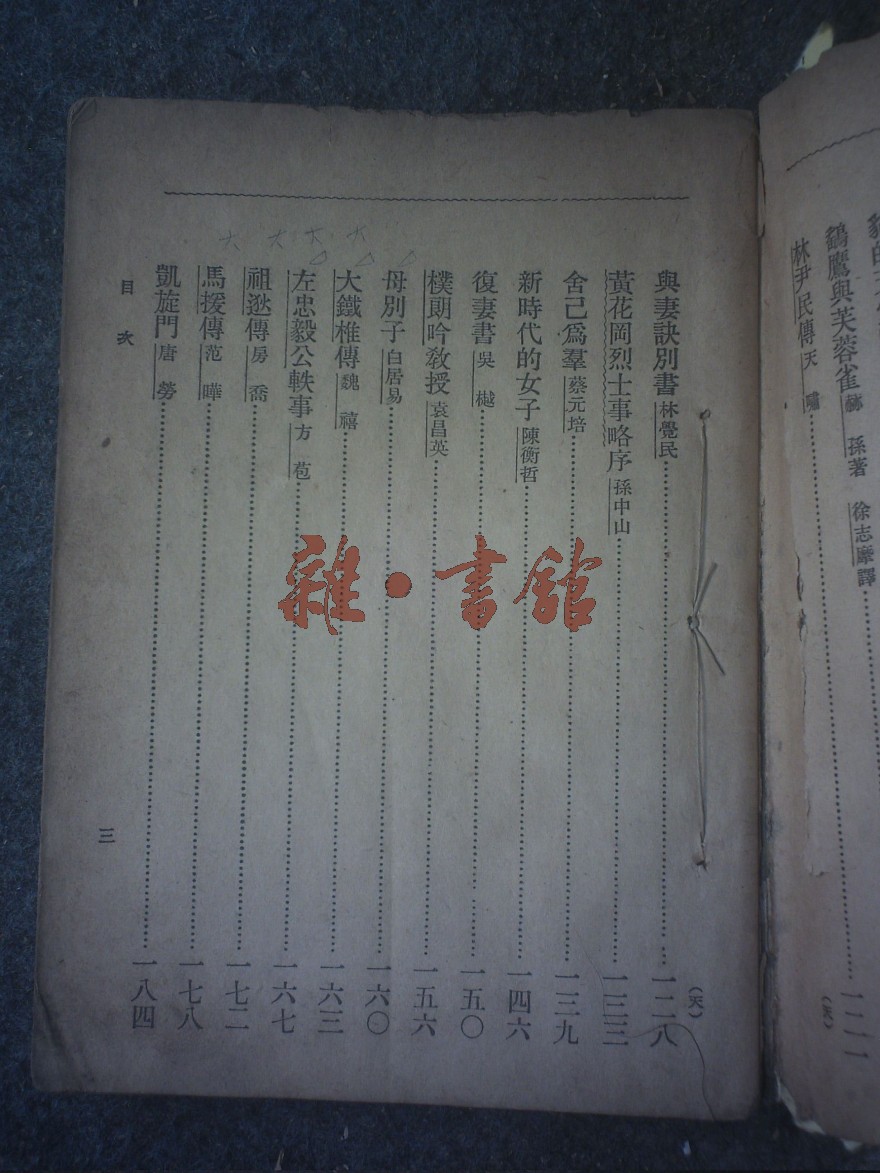 鷸鷹與芙蓉雀 赫孫著 徐志摩譯
林尹民傳 天嘯
與妻訣別書 林覺民 一二八
黃花岡烈士事略序 孫中山 一三三
舍己爲羣 蔡元培 一三九
新時代的女子 陳衡哲 一四六
復妻書 吳樾 一五〇
樸朗吟教授 袁昌英 一五六
母別子 白居易 一六〇
大鐵椎傳 魏禧 一六三
左忠毅公軼事 方苞 一六七
祖逖傳 房喬 一七二
馬援傳 范曄 一七八
凱旋門 唐勞 一八四
目次
三
大 大 大 大
雜·書館